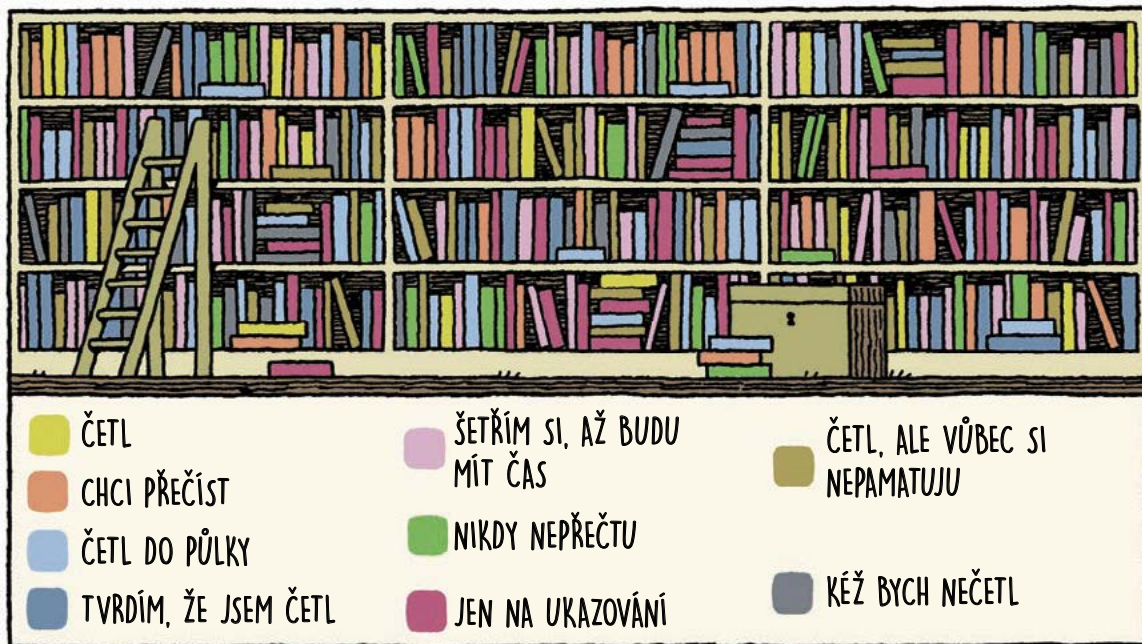 ČETL
CHCI PŘEČÍST
ČETL DO PŮLKY
TVRDÍM, ŽE JSEM ČETL
ŠETŘÍM SI, AŽ BUDU
MÍT ČAS
NIKDY NEPŘEČTU
JEN NA UKAZOVÁNÍ
ČETL, ALE VŮBEC SI
NEPAMATUJU
KÉŽ BYCH NEČETL